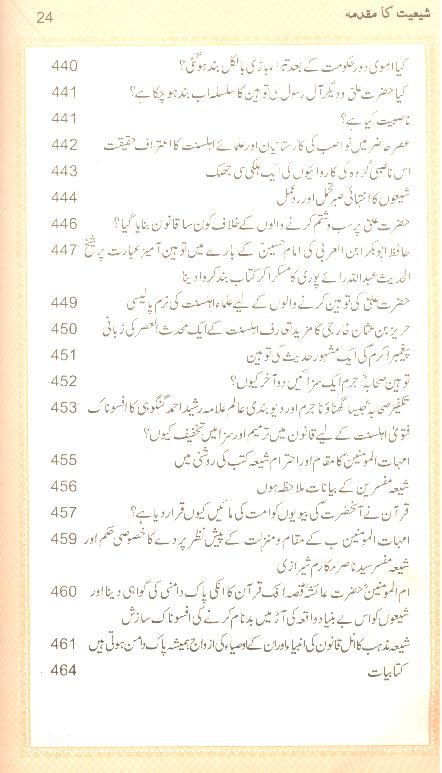 شیعیت کا مقدمہ 24
کیا اموی دور حکومت کے بعد تبراء بازی بالکل بند ہو گئی؟ 440
کیا حضرت علیؑ و دیگر آل رسولؐ کی توہین کا سلسلہ اب بند ہو چکا ہے؟ 441
ناصبیت کیا ہے؟ 441
عصر حاضر میں نواصب کی کارستانیاں اور علمائے اہلسنت کا اعتراف حقیقت 442
اس ناصبی گروہ کی کاروائیوں کی ایک ہلکی سی جھلک 443
شیعوں کا انتہائی صبر و تحمل اور ردعمل 444
حضرت علیؑ پر سب و شتم کرنے والوں کے خلاف کون سا قانون بنایا گیا؟ 446
حافظ ابوبکر ابن العربی کی امام حسینؑ کے بارے میں توہین آمیز عبارت پر شیخ 447
الحدیث عبداللہ رائے پوری کا مسکرا کر کتاب بند کروا دینا
حضرت علیؑ کی توہین کرنے والوں کے لیے علماء اہلسنت کی نرم پالیسی 449
حریز بن عثمان خارجی کا مزید تعارف اہلسنت کے ایک محدث العصر کی زبانی 450
پیغمبر اکرمؐ کی ایک مشہور حدیث کی توہین 451
توہین صحابہؓ جرم ایک سزائیں دو آخر کیوں؟ 452
تکفیر صحابہؓ جیسا گھناؤنا جرم اور دیوبندی عالم علامہ رشید احمد گنگوہی کا افسوناک 453
فتویٰ اہلسنت کے لیے قانون میں ترمیم اور سزا میں تخفیف کیوں؟
امہات المومنینؓ کا مقام اور احترام شیعہ کتب کی روشنی میں 455
شیعہ مفسرین کے بیانات ملاحظہ ہوں 456
قرآن نے آنحضرتؐ کی بیویوں کو امت کی مائیں کیوں قرار دیا ہے؟ 457
امہات المومنین ب کے مقام و منزلت کے پیش نظر پردے کا خصوصی حکم اور 459
شیعہ مفسر سید ناصر مکارم شیرازی
ام المومنینؓ حضرت عائشہؓ قصہ افک قرآن کا انکی پاک دامنی کی گواہی دینا اور 460
شیعوں کو اس بے بنیاد واقعہ کی آڑ میں بدنام کرنے کی افسوناک سازش
شیعہ مذہب کا اٹل قانون کی انبیاء اور ان کے اوصیاء کی ازواج ہمیشہ پاک دامن ہوتی ہیں 461
کتابیات 464